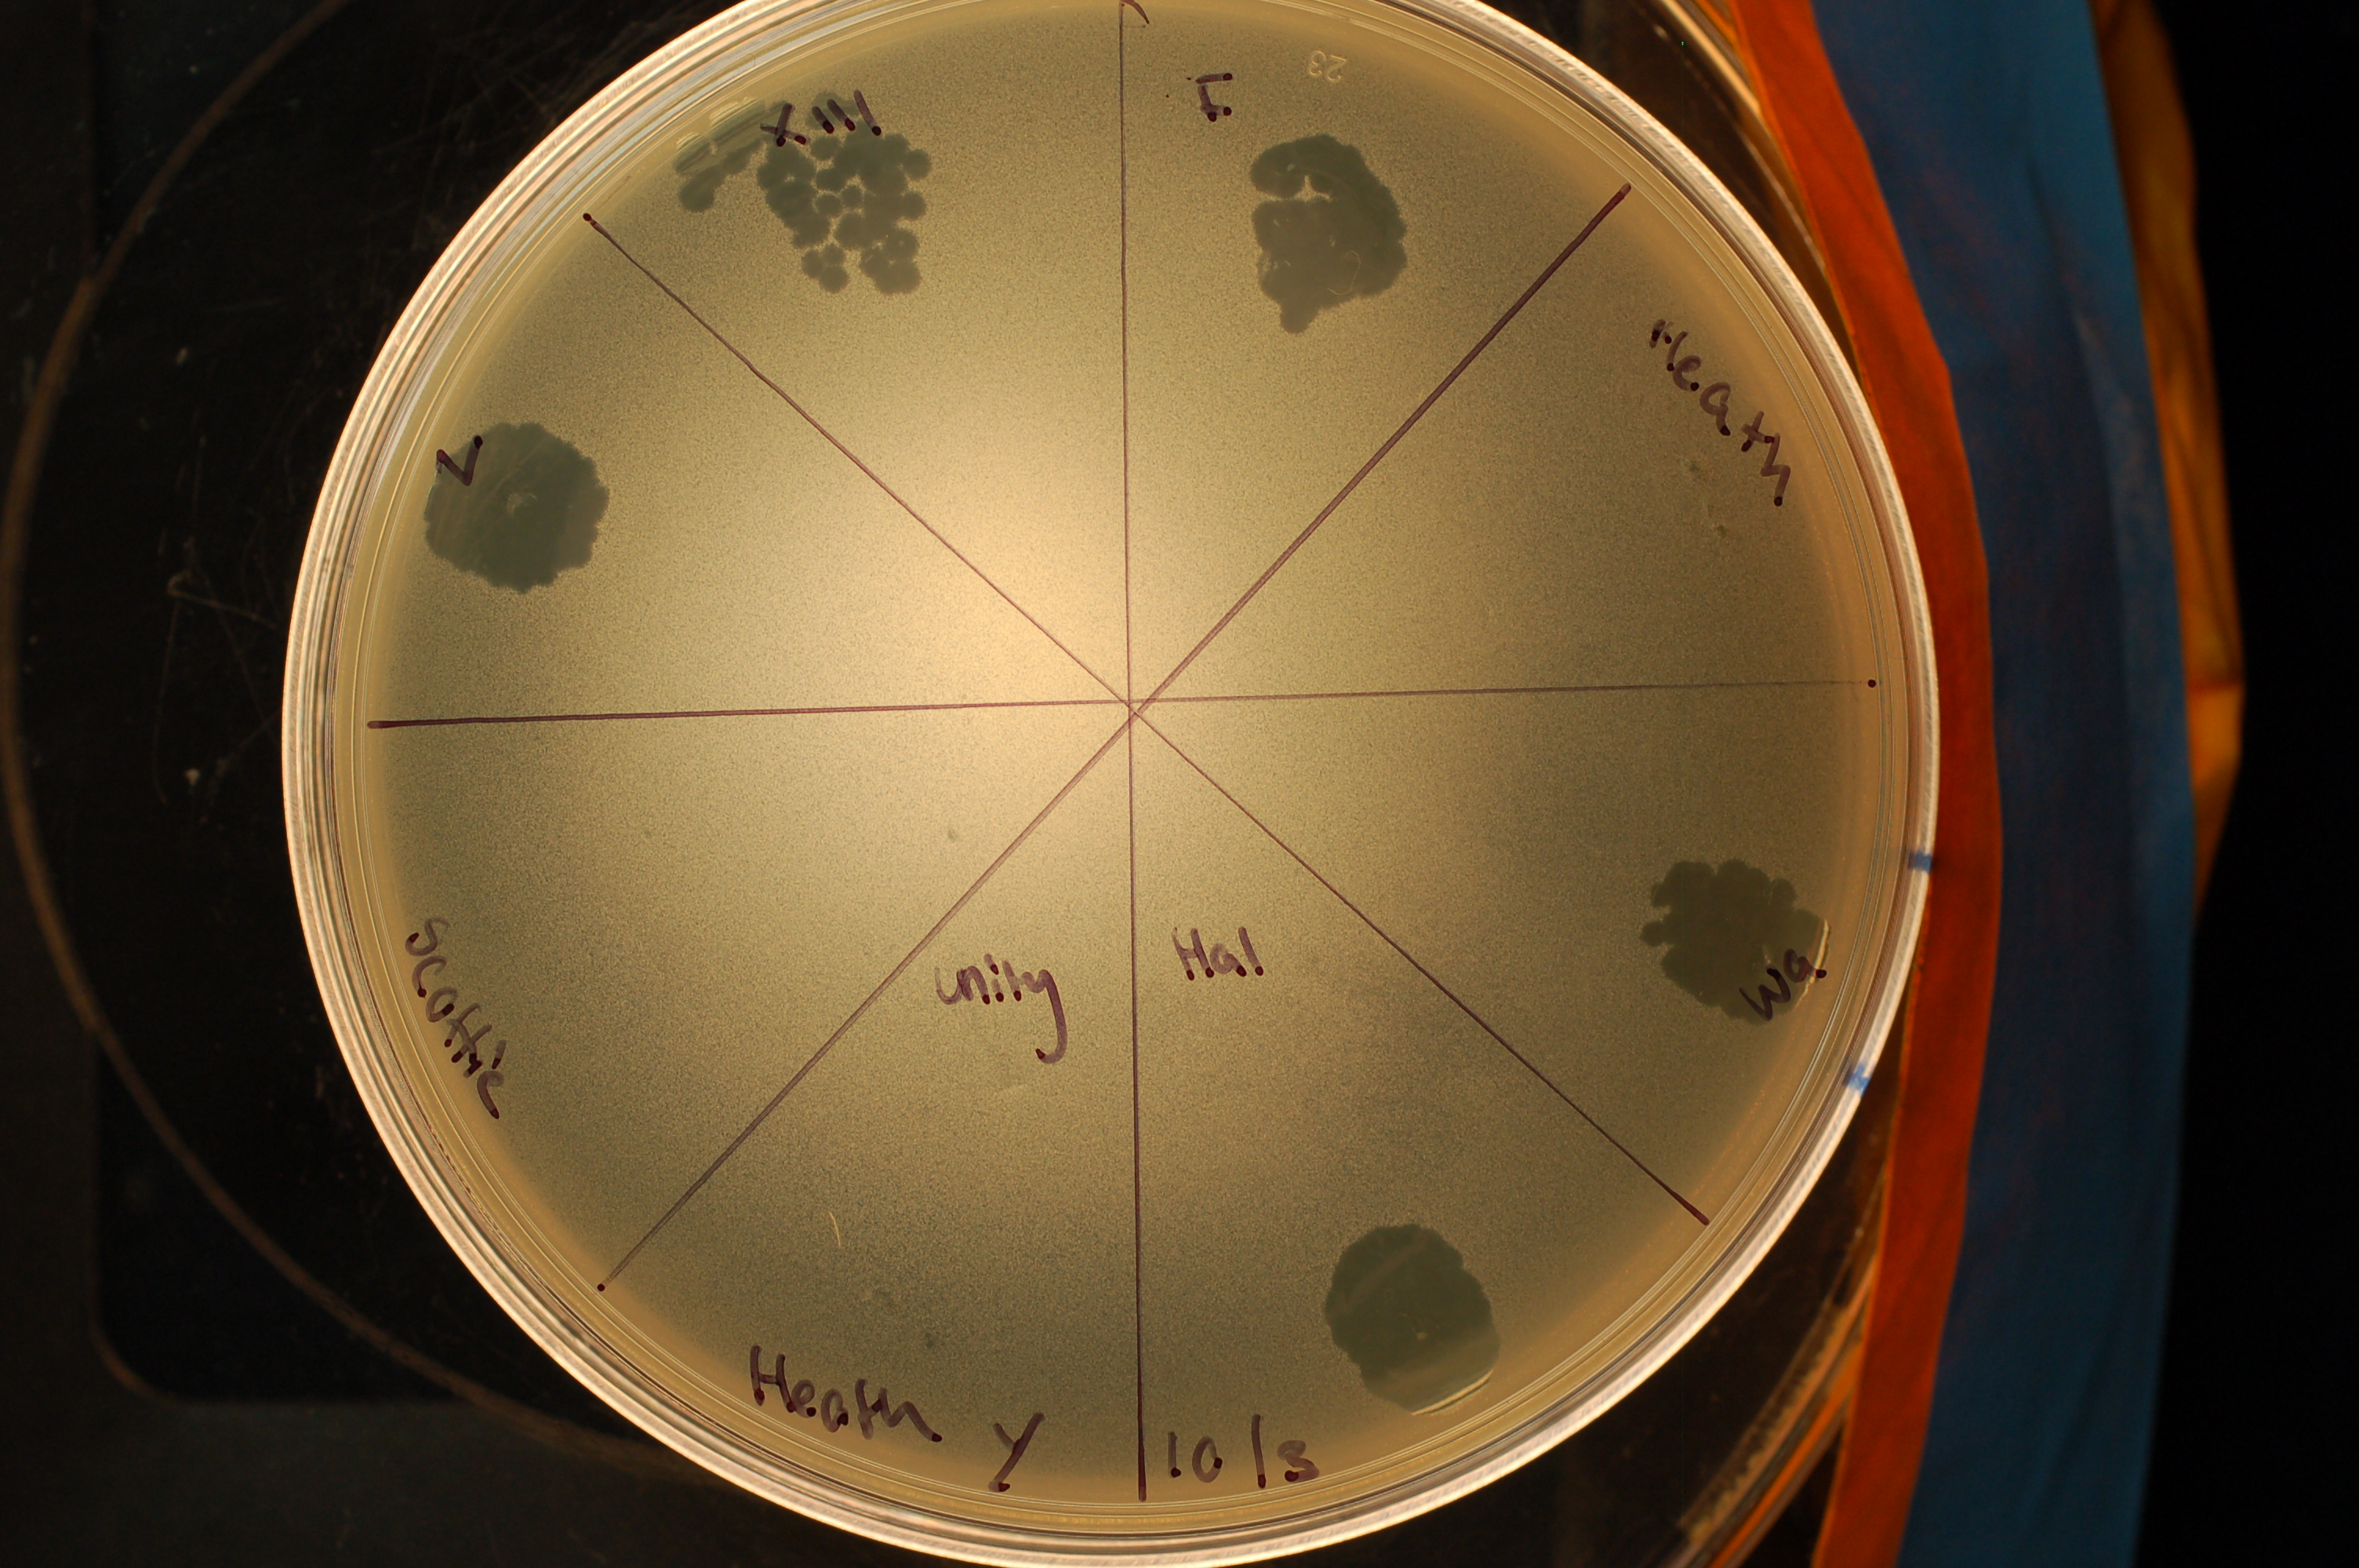 XIII
I
23
Heath
V
Wa
Scottie
Unity
Hal
Heath Y
10/3